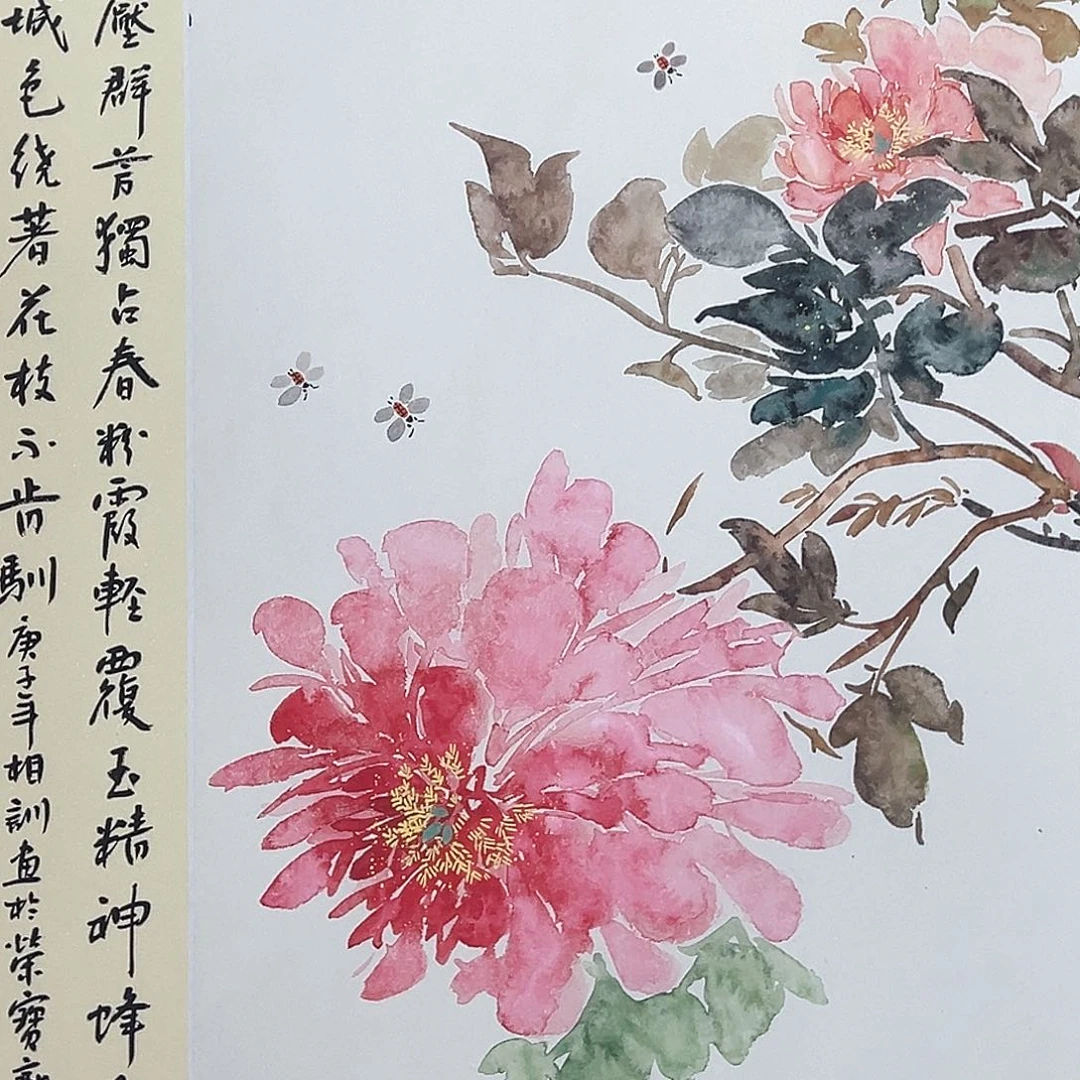 壓群芳獨占春粉霞輕覆玉精神蜂
城色繞著花枝不肯馴庚子年相訓畫於榮寶齋